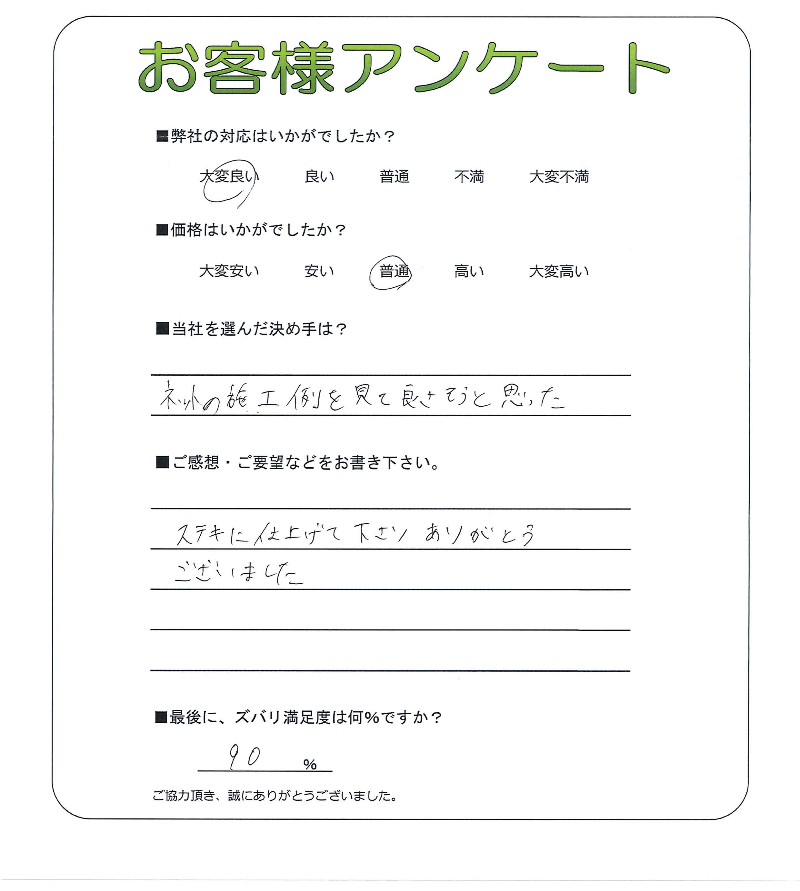 お客様アンケート
■弊社の対応はいかがでしたか？
大変良い 良い 普通 不満 大変不満
■価格はいかがでしたか？
大変安い 安い 普通 高い 大変高い
■当社を選んだ決め手は？
ネットの施工例を見て良さそうと思った
■ご感想・ご要望などをお書き下さい。
ステキに仕上げて下さり ありがとう
ございました
■最後に、ズバリ満足度は何%ですか？
90 %
ご協力頂き、誠にありがとうございました。